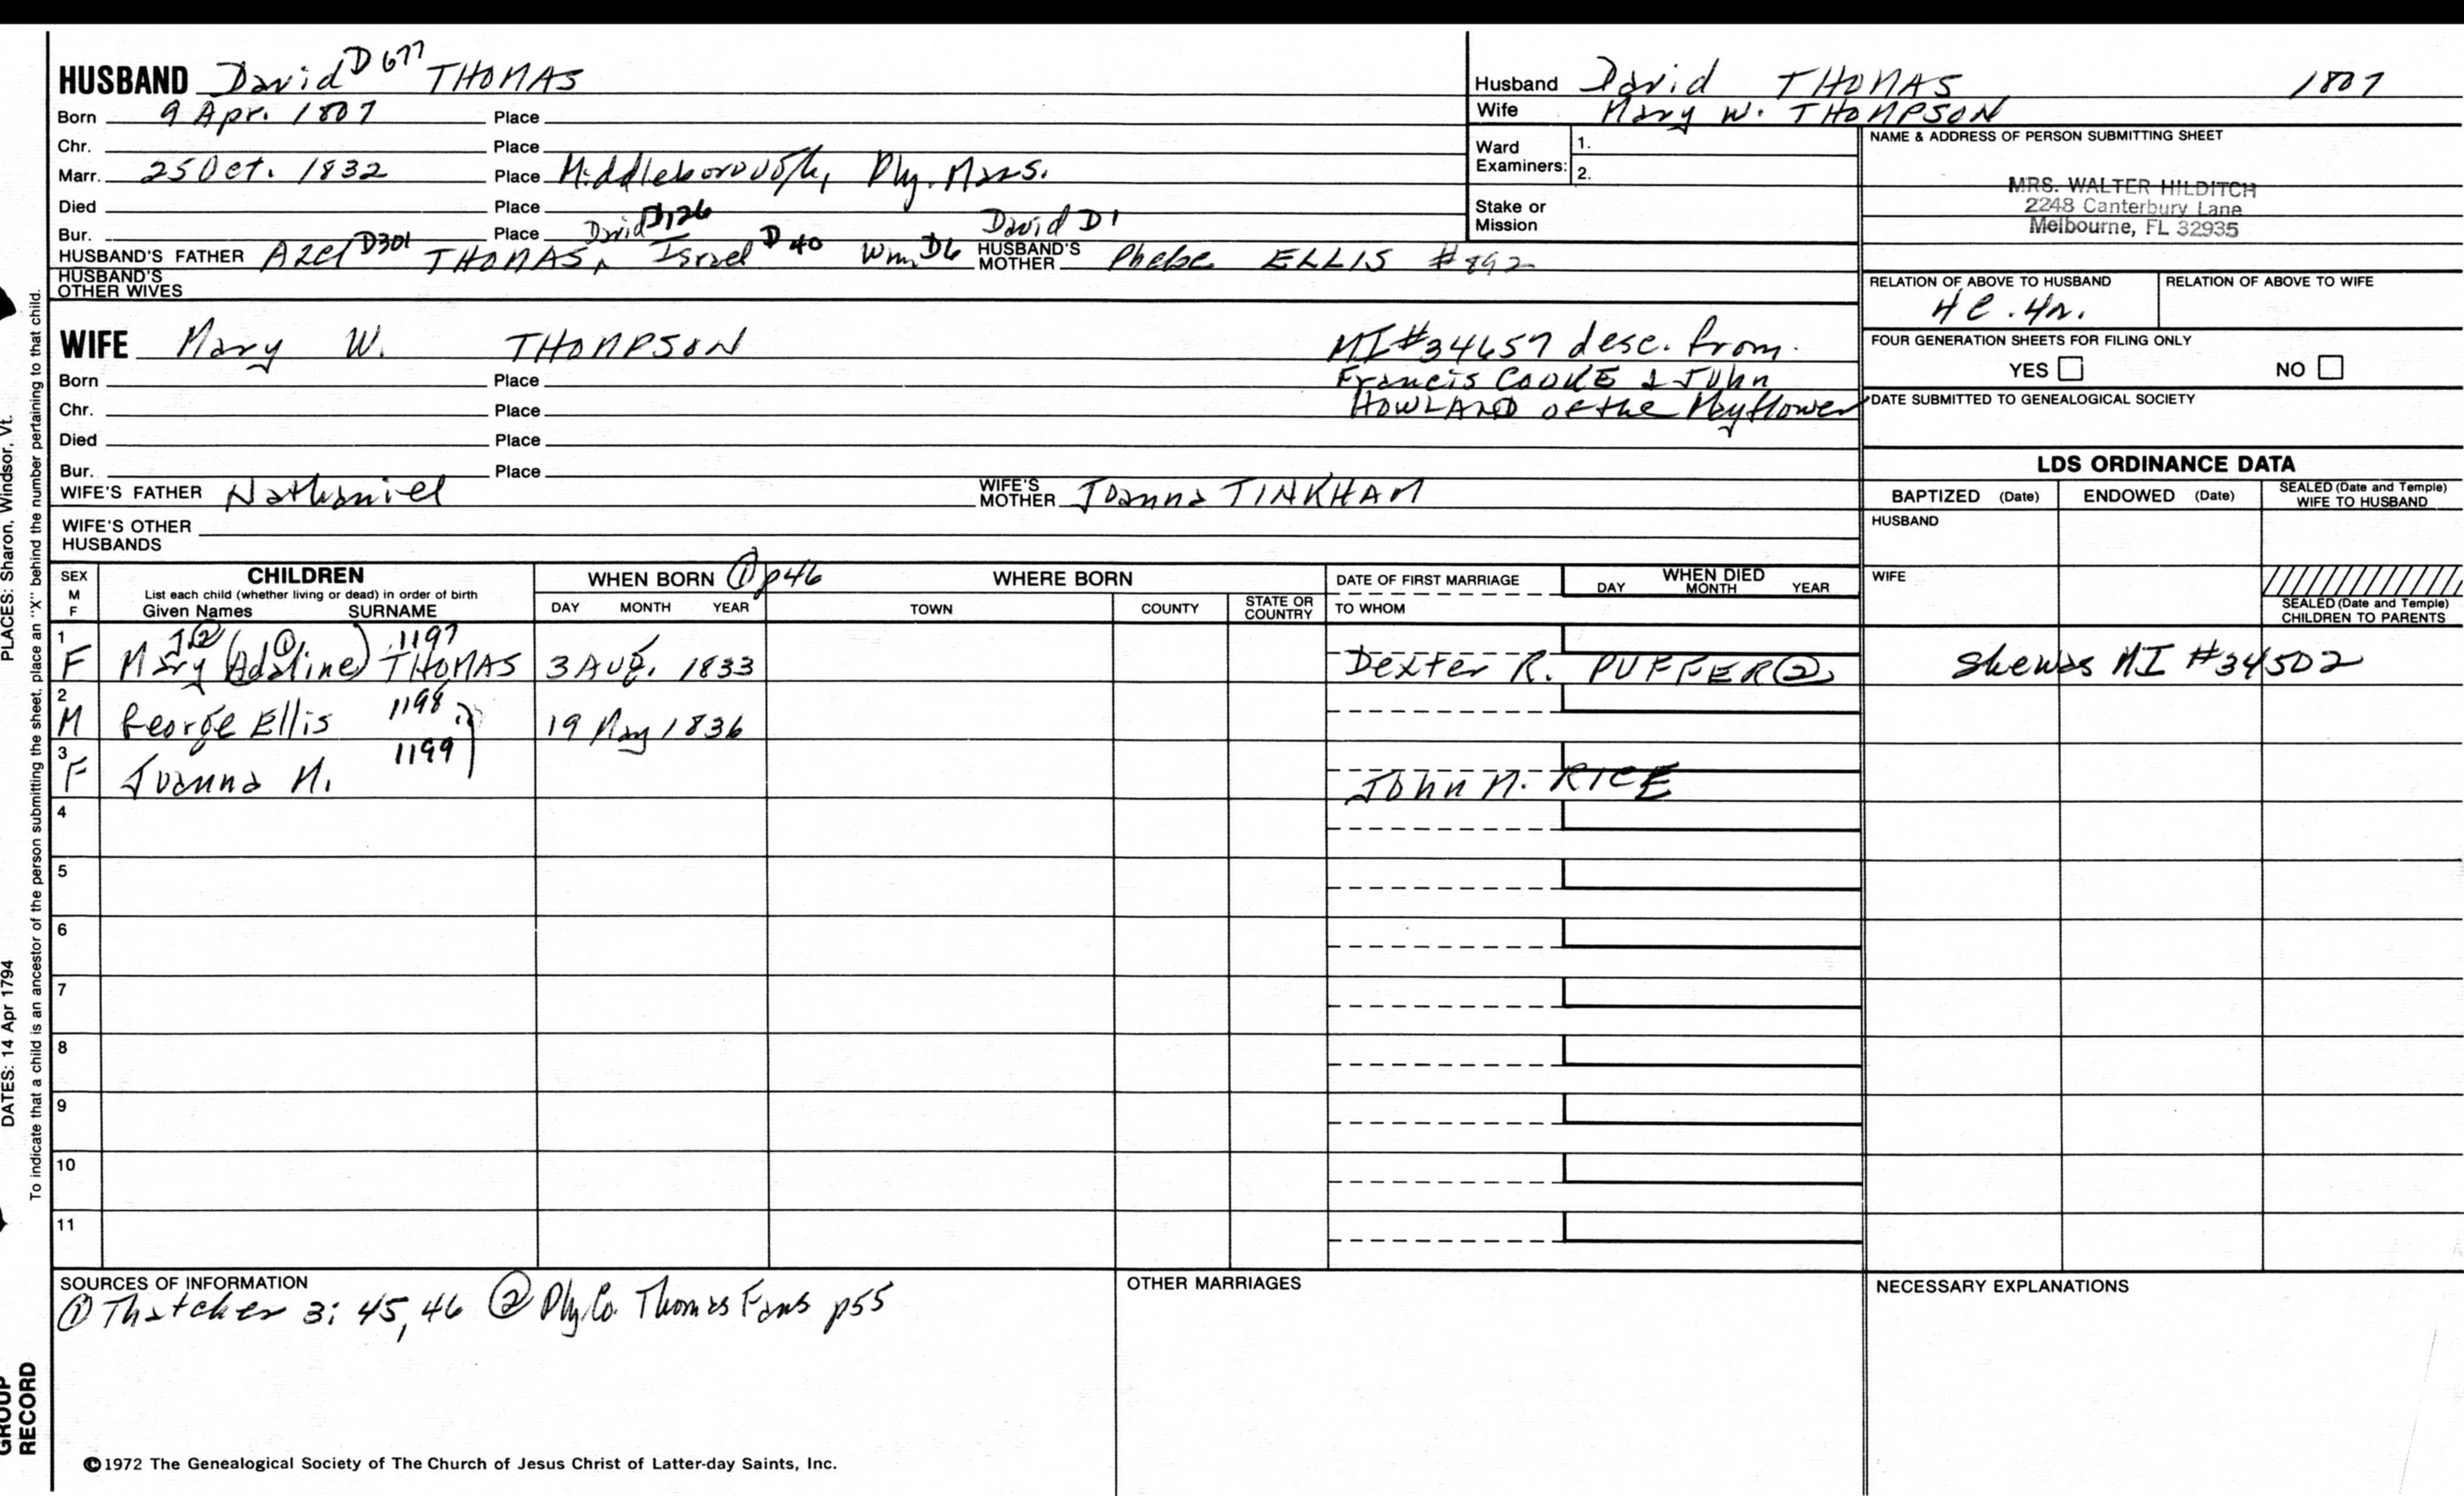 HUSBAND David D677 THOMAS
Born 9 Apr. 1807 Place
Chr. Place
Marr. 25 Oct. 1832 Place Middleborough, Ply. Mass.
Died Place
Bur. Place David D126 David D1
HUSBAND'S FATHER Azel D301 THOMAS, Israel D40 Wm D6 HUSBAND'S MOTHER Phebe ELLIS #892
HUSBAND'S OTHER WIVES
WIFE Mary W. THOMPSON
MI#34657 desc. from
Francis COOKE & John
HOWLAND of the Mayflower
Born Place
Chr. Place
Died Place
Bur. Place
WIFE'S FATHER Nathaniel WIFE'S MOTHER Joanna TINKHAM
WIFE'S OTHER HUSBANDS
Husband David THOMAS 1807
Wife Mary W. THOMPSON
Ward Examiners: 1.
2.
Stake or Mission
NAME & ADDRESS OF PERSON SUBMITTING SHEET
MRS. WALTER HILDITCH
2248 Canterbury Lane
Melbourne, FL 32935
RELATION OF ABOVE TO HUSBAND RELATION OF ABOVE TO WIFE
FOUR GENERATION SHEETS FOR FILING ONLY
YES NO
DATE SUBMITTED TO GENEALOGICAL SOCIETY
LDS ORDINANCE DATA
BAPTIZED (Date) ENDOWED (Date) SEALED (Date and Temple) WIFE TO HUSBAND
HUSBAND
WIFE
SEALED (Date and Temple) CHILDREN TO PARENTS
SEX M F
CHILDREN
List each child (whether living or dead) in order of birth
Given Names SURNAME
WHEN BORN ① p46
DAY MONTH YEAR
WHERE BORN
TOWN COUNTY STATE OR COUNTRY
DATE OF FIRST MARRIAGE
TO WHOM
WHEN DIED
DAY MONTH YEAR
1 F Mary J② (Adaline)① THOMAS 1197 3 Aug. 1833 Dexter R. PUFFER② Shewas MI #34502
2 M George Ellis 1198 19 May 1836
3 F Joanna M. 1199 John M. RICE
4
5
6
7
8
9
10
11
SOURCES OF INFORMATION
① Thatcher 3: 45, 46 ② Ply. Co. Thomas Fams p55
OTHER MARRIAGES
NECESSARY EXPLANATIONS
©1972 The Genealogical Society of The Church of Jesus Christ of Latter-day Saints, Inc.
PLACES: Sharon, Windsor, Vt.
DATES: 14 Apr 1794
To indicate that a child is an ancestor of the person submitting the sheet, place an "X" behind the number pertaining to that child.
GROUP
RECORD